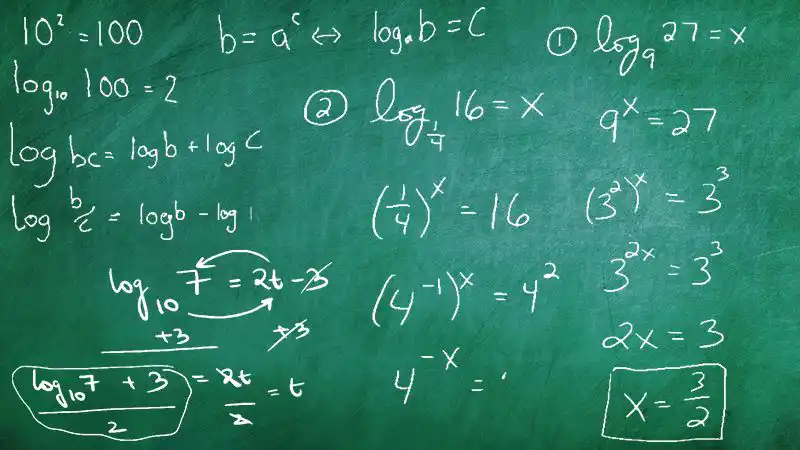 10² = 100
log₁₀ 100 = 2
log bc = log b + log c
log b/c = log b - log
b = aᶜ ↔ logₐ b = c
log₁₀ 7 = 2t - 3
+3 +3
(log₁₀ 7 + 3)/2 = 2t/2 = t
② log_¼ 16 = x
(1/4)ˣ = 16
(4⁻¹)ˣ = 4²
4⁻ˣ =
① log₉ 27 = x
9ˣ = 27
(3²)ˣ = 3³
3²ˣ = 3³
2x = 3
x = 3/2